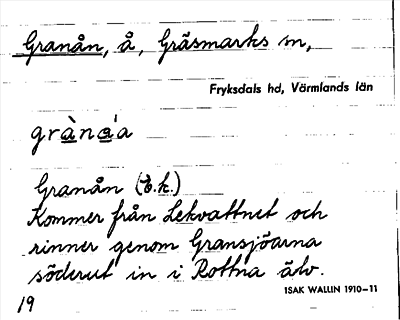 Granån, å, Gräsmarks sn,
Fryksdals hd, Värmlands län
gràna̍a
Granån (E.k.)
Kommer från Lekvattnet och
rinner genom Gransjöarna
söderut in i Rottna älv.
ISAK WALLIN 1910–11
19